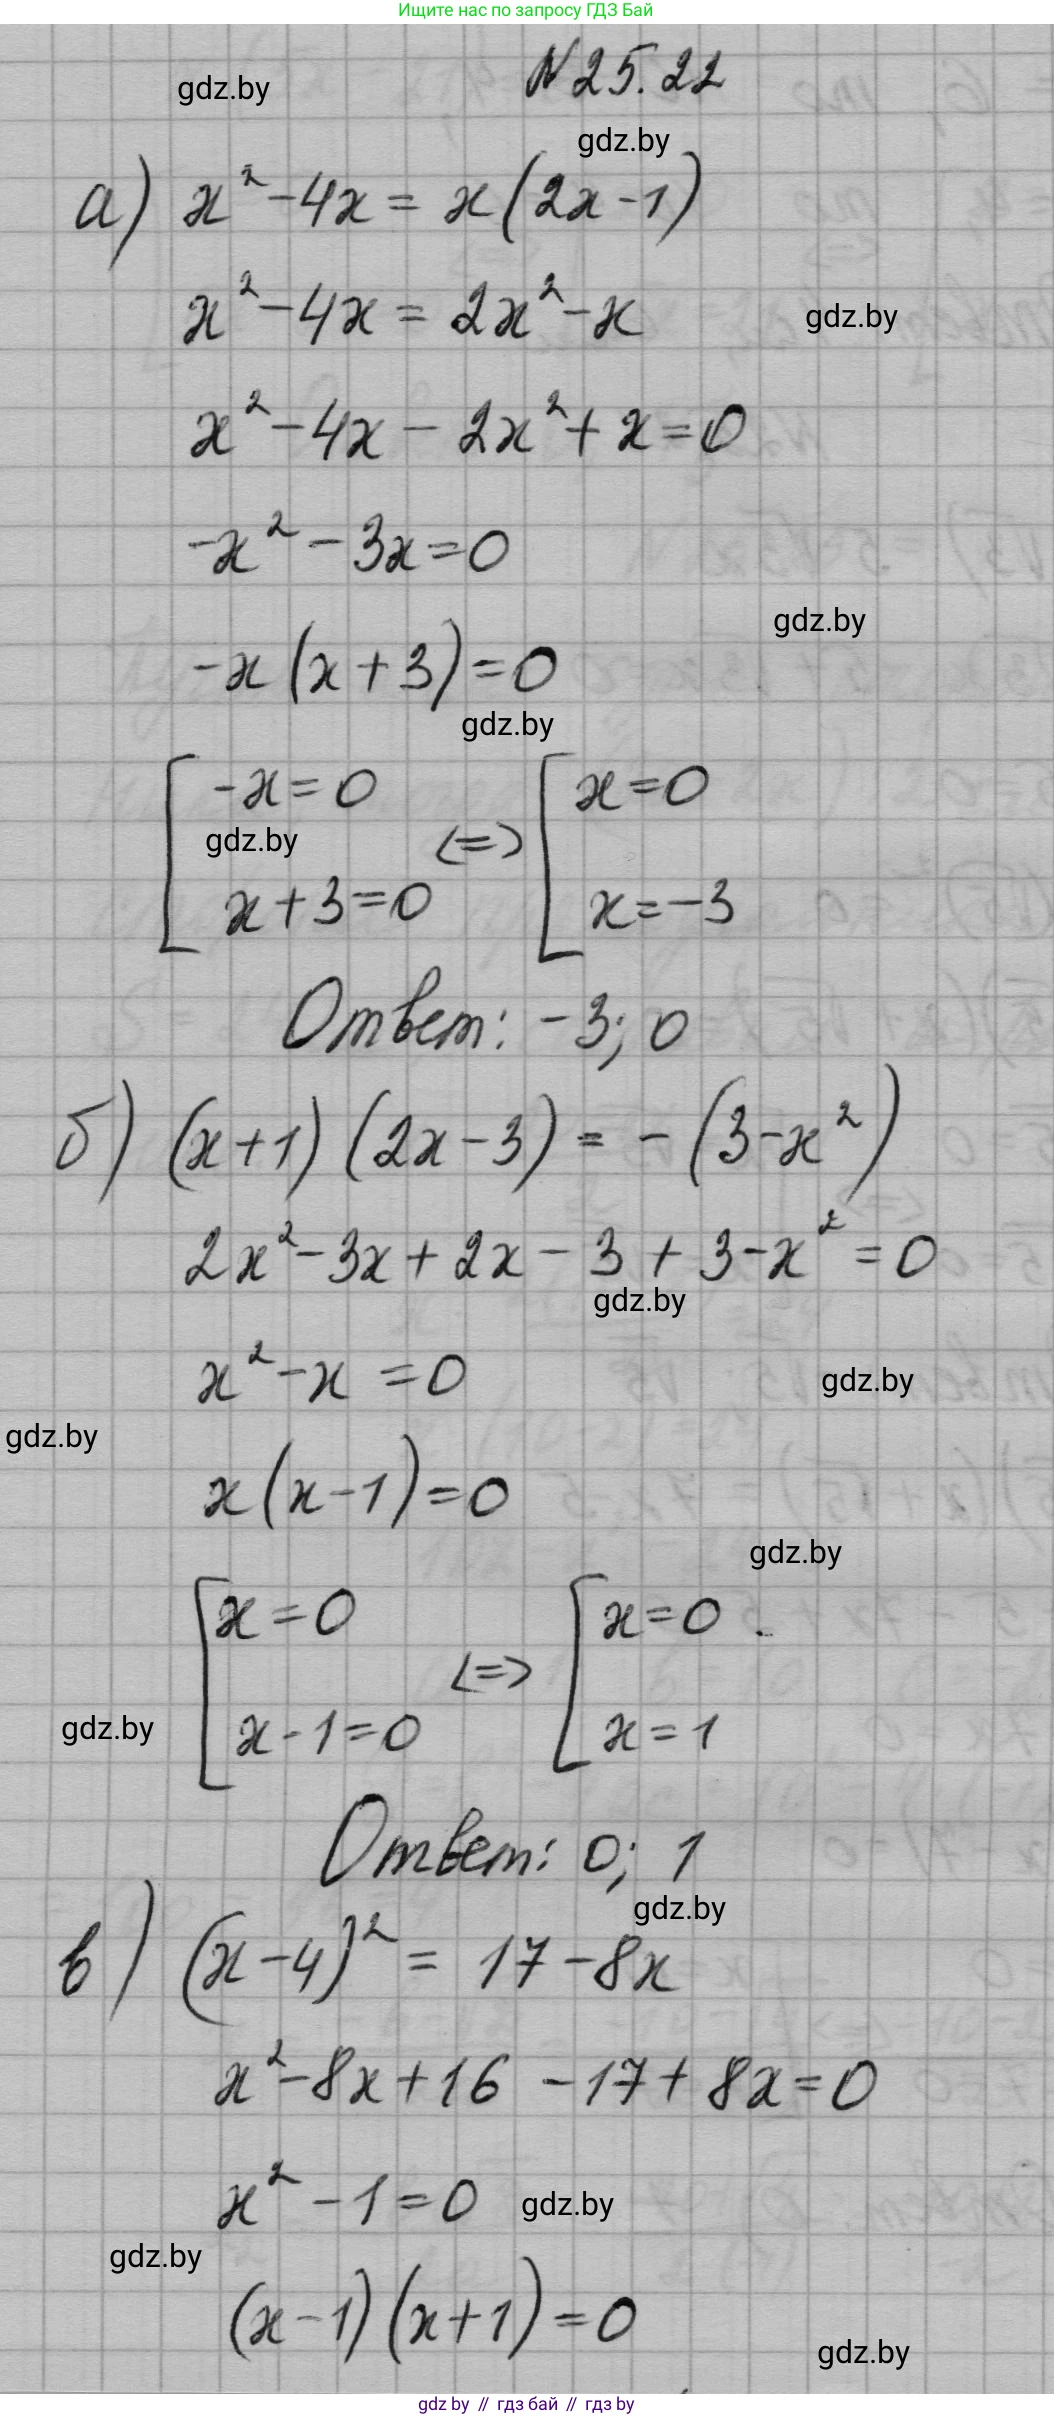 Ищите нас по запросу ГДЗ Бай
N 25.22
gdz.by
gdz.by
а) x² - 4x = x(2x - 1)
x² - 4x = 2x² - x
gdz.by
x² - 4x - 2x² + x = 0
-x² - 3x = 0
gdz.by
-x(x + 3) = 0
gdz.by
[ -x = 0 <=> [ x = 0
gdz.by
x + 3 = 0 x = -3
Ответ: -3; 0
б) (x + 1)(2x - 3) = -(3 - x²)
2x² - 3x + 2x - 3 + 3 - x² = 0
gdz.by
x² - x = 0
gdz.by
gdz.by
x(x - 1) = 0
gdz.by
[ x = 0 <=> [ x = 0 .
gdz.by
x - 1 = 0 x = 1
Ответ: 0; 1
gdz.by
в) (x - 4)² = 17 - 8x
x² - 8x + 16 - 17 + 8x = 0
x² - 1 = 0
gdz.by
gdz.by
(x - 1)(x + 1) = 0
gdz.by
gdz by // гдз бай // гдз by